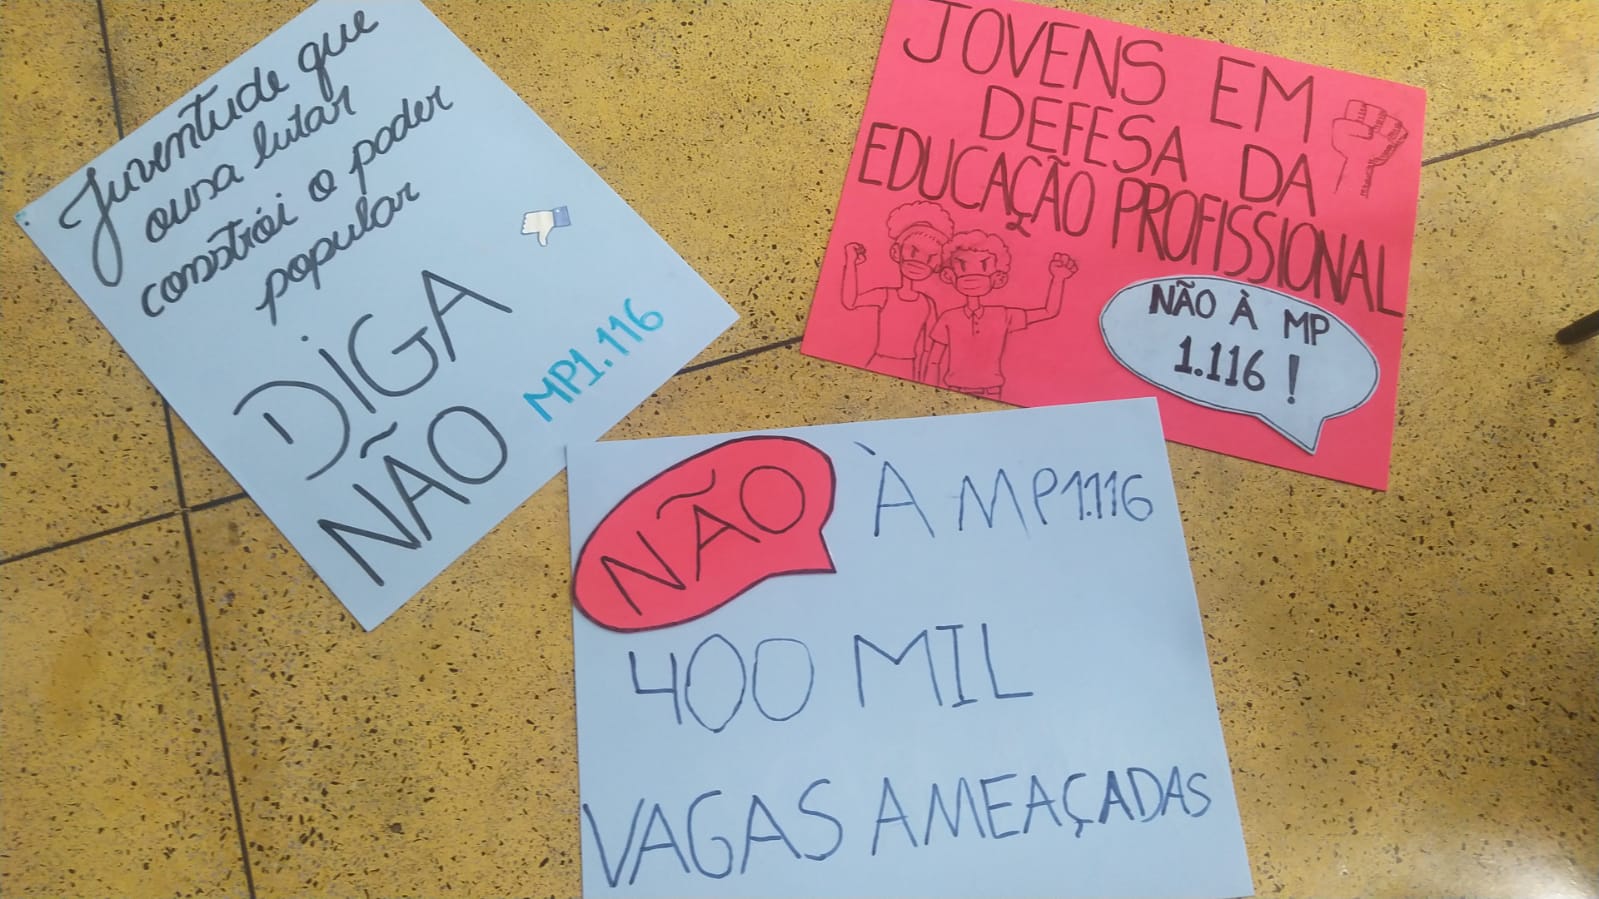 Juventude que
ousa lutar
constrói o poder
popular
DIGA
NÃO
MP1.116
JOVENS EM
DEFESA DA
EDUCAÇÃO PROFISSIONAL
NÃO À MP
1.116 !
NÃO À MP1.116
400 MIL
VAGAS AMEAÇADAS